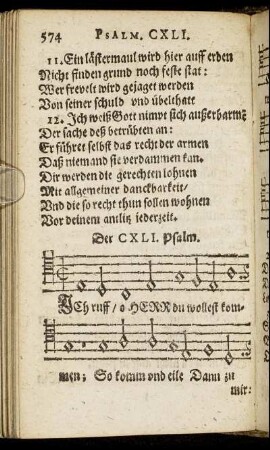 574 PSALM. CXLI.
11. Ein lästermaul wird hier auff erden
Nicht finden grund noch feste stat:
Wer frevelt wird gejaget werden
Von seiner schuld und übelthatt
12. Ich weiß Gott nimpt sich außerbarmẽ
Der sache deß betrübten an:
Er führet selbst das recht der armen
Daß niemand sie verdammen kan.
Dir werden die gerechten lohnen
Mit allgemeiner danckbarkeit/
Vnd die so recht thun sollen wohnen
Vor deinem antlitz jederzeit.
Der CXLI. Psalm.
ICh ruff / o HERR du wollest kom-
men; So komm vnd eile Dann zu
mir: